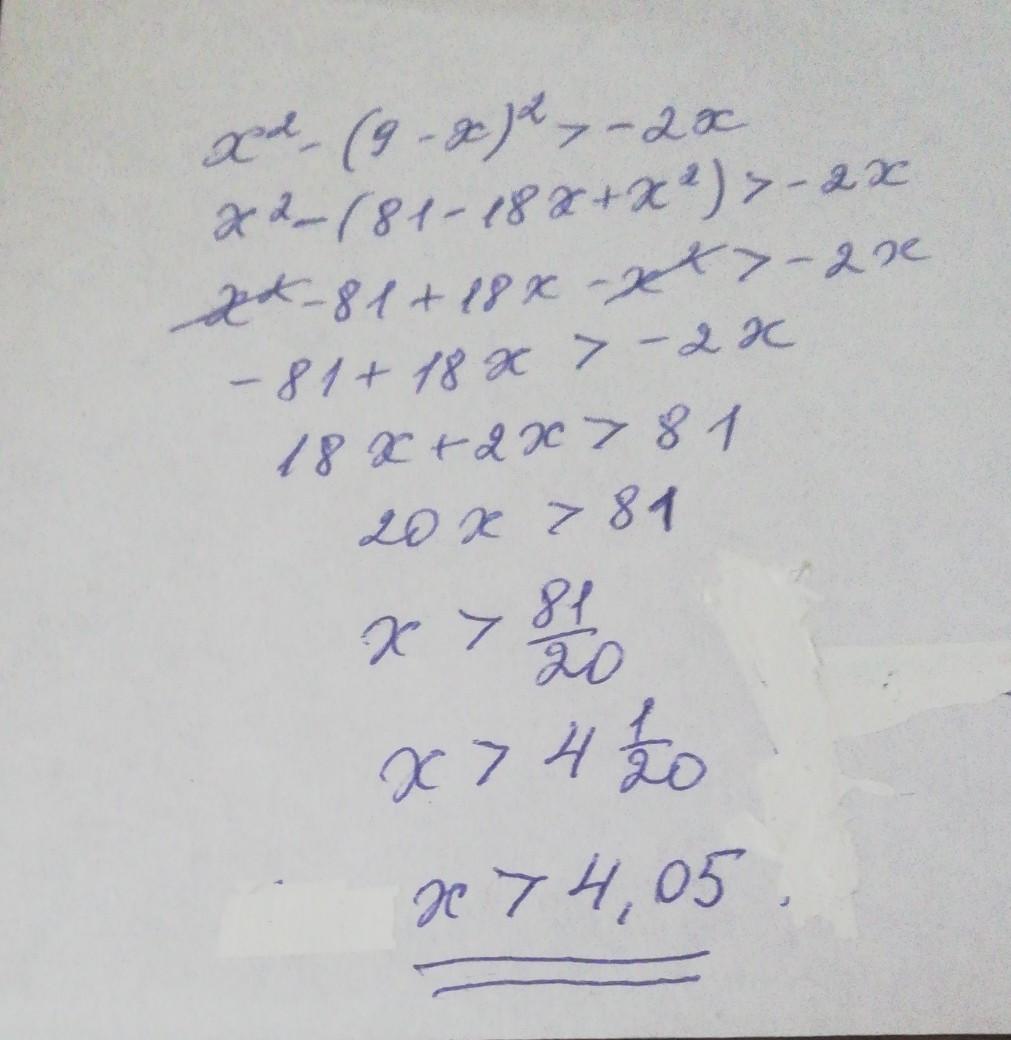 x² - (9 - x)² > -2x
x² - (81 - 18x + x²) > -2x
x² - 81 + 18x - x² > -2x
-81 + 18x > -2x
18x + 2x > 81
20x > 81
x > 81/20
x > 4 1/20
x > 4,05.